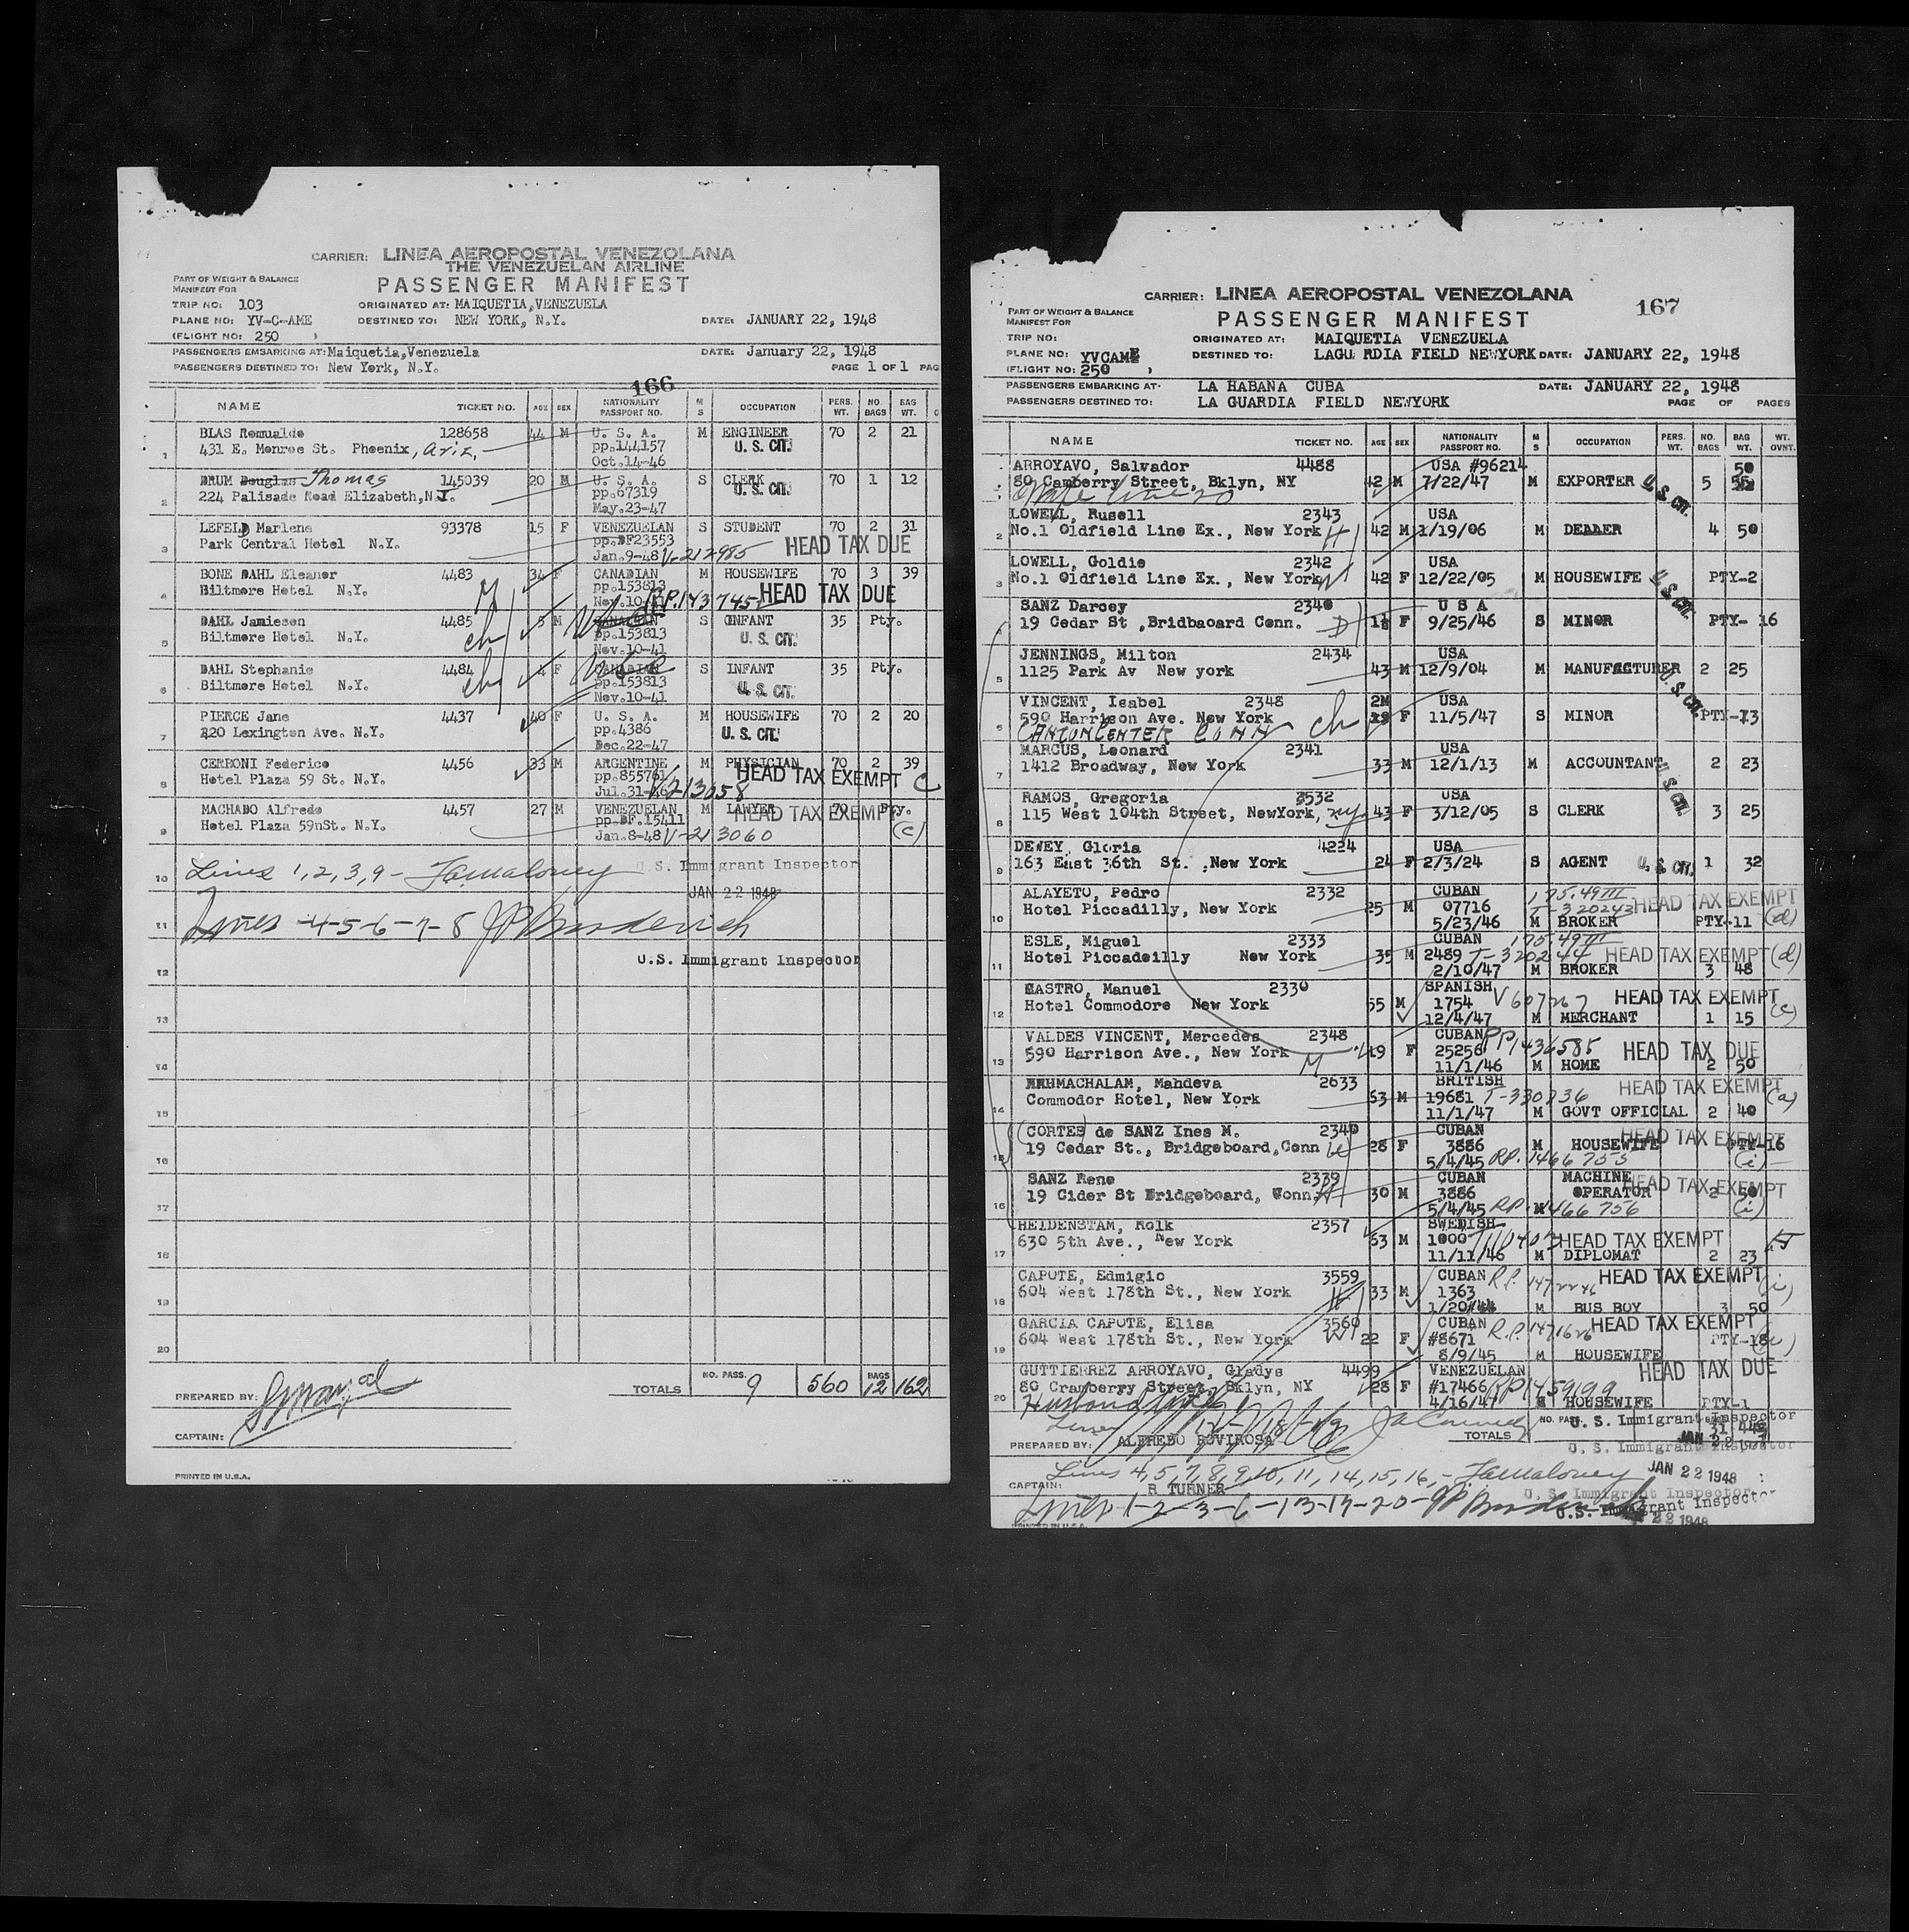 CARRIER: LINEA AEROPOSTAL VENEZOLANA
THE VENEZUELAN AIRLINE
PASSENGER MANIFEST
PART OF WEIGHT & BALANCE
MANIFEST FOR
TRIP NO: 103 ORIGINATED AT: MAIQUETIA,VENEZUELA
PLANE NO: YV-C-AME DESTINED TO: NEW YORK, N.Y. DATE: JANUARY 22, 1948
(FLIGHT NO: 250 )
PASSENGERS EMBARKING AT: Maiquetia,Venezuela DATE: January 22, 1948
PASSENGERS DESTINED TO: New York, N.Y. PAGE 1 OF 1 PAG
166
NAME TICKET NO. AGE SEX NATIONALITY PASSPORT NO. M S OCCUPATION PERS. WT. NO. BAGS BAG WT.
BLAS Romualdo 128658 44 M U. S. A. M ENGINEER 70 2 21
1 431 E. Monroe St. Phoenix, Ariz. pp.144157 U. S. CIT.
Oct.14-46
DRUM Douglas Thomas 145039 20 M U. S. A. S CLERK 70 1 12
2 224 Palisade Road Elizabeth,N.J. pp.67319 U. S. CIT.
May.23-47
LEFELD Marlene 93378 15 F VENEZUELAN S STUDENT 70 2 31
3 Park Central Hotel N.Y. pp.DF23553 HEAD TAX DUE
Jan.9-48 V-212985
BONE DAHL Eleanor 4483 34 F CANADIAN M HOUSEWIFE 70 3 39
4 Biltmore Hotel N.Y. pp.153813 HEAD TAX DUE
Nov.10-41 R.P.1437452
DAHL Jamieson 4485 5 M CANADIAN S INFANT 35 Pty.
5 Biltmore Hotel N.Y. pp.153813 U. S. CIT.
Nov.10-41
DAHL Stephanie 4484 4 F CANADIAN S INFANT 35 Pty.
6 Biltmore Hotel N.Y. pp.153813 U. S. CIT.
Nov.10-41
PIERCE Jane 4437 40 F U. S. A. M HOUSEWIFE 70 2 20
7 220 Lexington Ave. N.Y. pp.4386 U. S. CIT.
Dec.22-47
CERBONI Federico 4456 33 M ARGENTINE M PHYSICIAN 70 2 39
8 Hotel Plaza 59 St. N.Y. pp.855761 HEAD TAX EXEMPT C
Jul.31-46 V213058
MACHADO Alfredo 4457 27 M VENEZUELAN M LAWYER 70 Pty.
9 Hotel Plaza 59nSt. N.Y. pp.DF.15411 HEAD TAX EXEMPT
Jan.8-48 V-213060 (c)
10 Lines 1,2,3,9 - Jamaloney U.S. Immigrant Inspector
JAN 22 1948
11 Lines -4-5-6-7-8 JP Broderick
12 U.S. Immigrant Inspector
13
14
15
16
17
18
19
20
PREPARED BY: TOTALS NO. PASS. 9 560 BAGS 12 162
CAPTAIN:
PRINTED IN U.S.A.
CARRIER: LINEA AEROPOSTAL VENEZOLANA
167
PASSENGER MANIFEST
PART OF WEIGHT & BALANCE
MANIFEST FOR
TRIP NO: ORIGINATED AT: MAIQUETIA VENEZUELA
PLANE NO: YVCAME DESTINED TO: LAGU RDIA FIELD NEWYORK DATE: JANUARY 22, 1948
(FLIGHT NO: 250 )
PASSENGERS EMBARKING AT: LA HABANA CUBA DATE: JANUARY 22, 1948
PASSENGERS DESTINED TO: LA GUARDIA FIELD NEWYORK PAGE OF PAGES
NAME TICKET NO. AGE SEX NATIONALITY PASSPORT NO. M S OCCUPATION PERS. WT. NO. BAGS BAG WT. WT. OVNT.
ARROYAVO, Salvador 4488 USA #96214 50
80 Camberry Street, Bklyn, NY 42 M 7/22/47 M EXPORTER U. S. CIT. 5 55
LOWELL, Rusell 2343 USA
2 No.1 Oldfield Line Ex., New York H 42 M 1/19/06 M DEALER 4 50
LOWELL, Goldie 2342 USA
3 No.1 Oldfield Line Ex., New York W 42 F 12/22/05 M HOUSEWIFE U. S. CIT. PTY-2
SANZ Darcey 2340 U S A
4 19 Cedar St ,Bridbaoard Conn. D F 9/25/46 S MINOR PTY- 16
JENNINGS, Milton 2434 USA
5 1125 Park Av New york 43 M 12/9/04 M MANUFACTURER 2 25
U. S. CIT.
VINCENT, Isabel 2348 2M USA
6 590 Harrison Ave. New York ch F 11/5/47 S MINOR PTY-13
CANTON CENTER CONN
MARCUS, Leonard 2341 USA
7 1412 Broadway, New York 33 M 12/1/13 M ACCOUNTANT 2 23
U. S. CIT.
RAMOS, Gregoria 3532 USA
8 115 West 104th Street, NewYork, ny. 43 F 3/12/05 S CLERK 3 25
DEWEY, Gloria 4224 USA
9 163 East 36th St. ,New York 24 F 2/3/24 S AGENT U. S. CIT. 1 32
ALAYETO, Pedro 2332 CUBAN 175.49 III
10 Hotel Piccadilly, New York 25 M 07716 T-320243 HEAD TAX EXEMPT
5/23/46 M BROKER PTY-11 (d)
ESLE, Miguel 2333 CUBAN 175.49 III
11 Hotel Piccadeilly New York 35 M 2489 T-320244 HEAD TAX EXEMPT (d)
2/10/47 M BROKER 3 48
CASTRO, Manuel 2330 SPANISH
12 Hotel Commodore New York 55 M 1754 V607267 HEAD TAX EXEMPT
12/4/47 M MERCHANT 1 15 (c)
VALDES VINCENT, Mercedes 2348 CUBAN
13 590 Harrison Ave., New York M 19 F 25256 RP1436585 HEAD TAX DUE
11/1/46 M HOME 2 50
MAHMACHALAM, Mahdeva 2633 BRITISH HEAD TAX EXEMPT
14 Commodor Hotel, New York 53 M 19681 T-330236 (a)
11/1/47 M GOVT OFFICIAL 2 40
(CORTES) de SANZ Ines M. 2340 CUBAN HEAD TAX EXEMPT
15 19 Cedar St., Bridgeboard,Conn W 28 F 3886 M HOUSEWIFE PTY-16
5/4/45 RP. 1466755 (i)
SANZ Rene 2339 CUBAN MACHINE HEAD TAX EXEMPT
16 19 Cider St Bridgeboard, Conn. H 30 M 3886 OPERATOR 2 50
5/4/45 RP. M 1466756 (i)
HEIDENSTAM, Rolk 2357 SWEDISH
17 630 5th Ave., New York 53 M 1000 HEAD TAX EXEMPT
11/11/46 M DIPLOMAT 2 23
CAPOTE, Edmigio 3559 CUBAN R.P. HEAD TAX EXEMPT (i)
18 604 West 178th St., New York H 33 M 1363
1/20/44 M BUS BOY 3 50
GARCIA CAPOTE, Elisa 3560 CUBAN R.P. HEAD TAX EXEMPT
19 604 West 178th St., New York W 22 F #8671 PTY-18
8/9/45 M HOUSEWIFE
GUTTIERREZ ARROYAVO, Gladys 4499 VENEZUELAN HEAD TAX DUE
20 80 Cramberry Street, Bklyn, NY 28 F #17466 RP1459199
4/16/47 HOUSEWIFE PTY-1
NO. PASS. U. S. Immigrant Inspector
PREPARED BY: ALFREDO ROVIROSA TOTALS 31
U. S. Immigrant Inspector
Lines 4,5,7,8,9,10, 11, 14, 15, 16, - Jamaloney JAN 22 1948
CAPTAIN: R TURNER U. S. Immigrant Inspector
Lines 1-2-3-6-13-17-20- JP Broderick U.S. Immigrant Inspector
22 1948
PRINTED IN U.S.A.